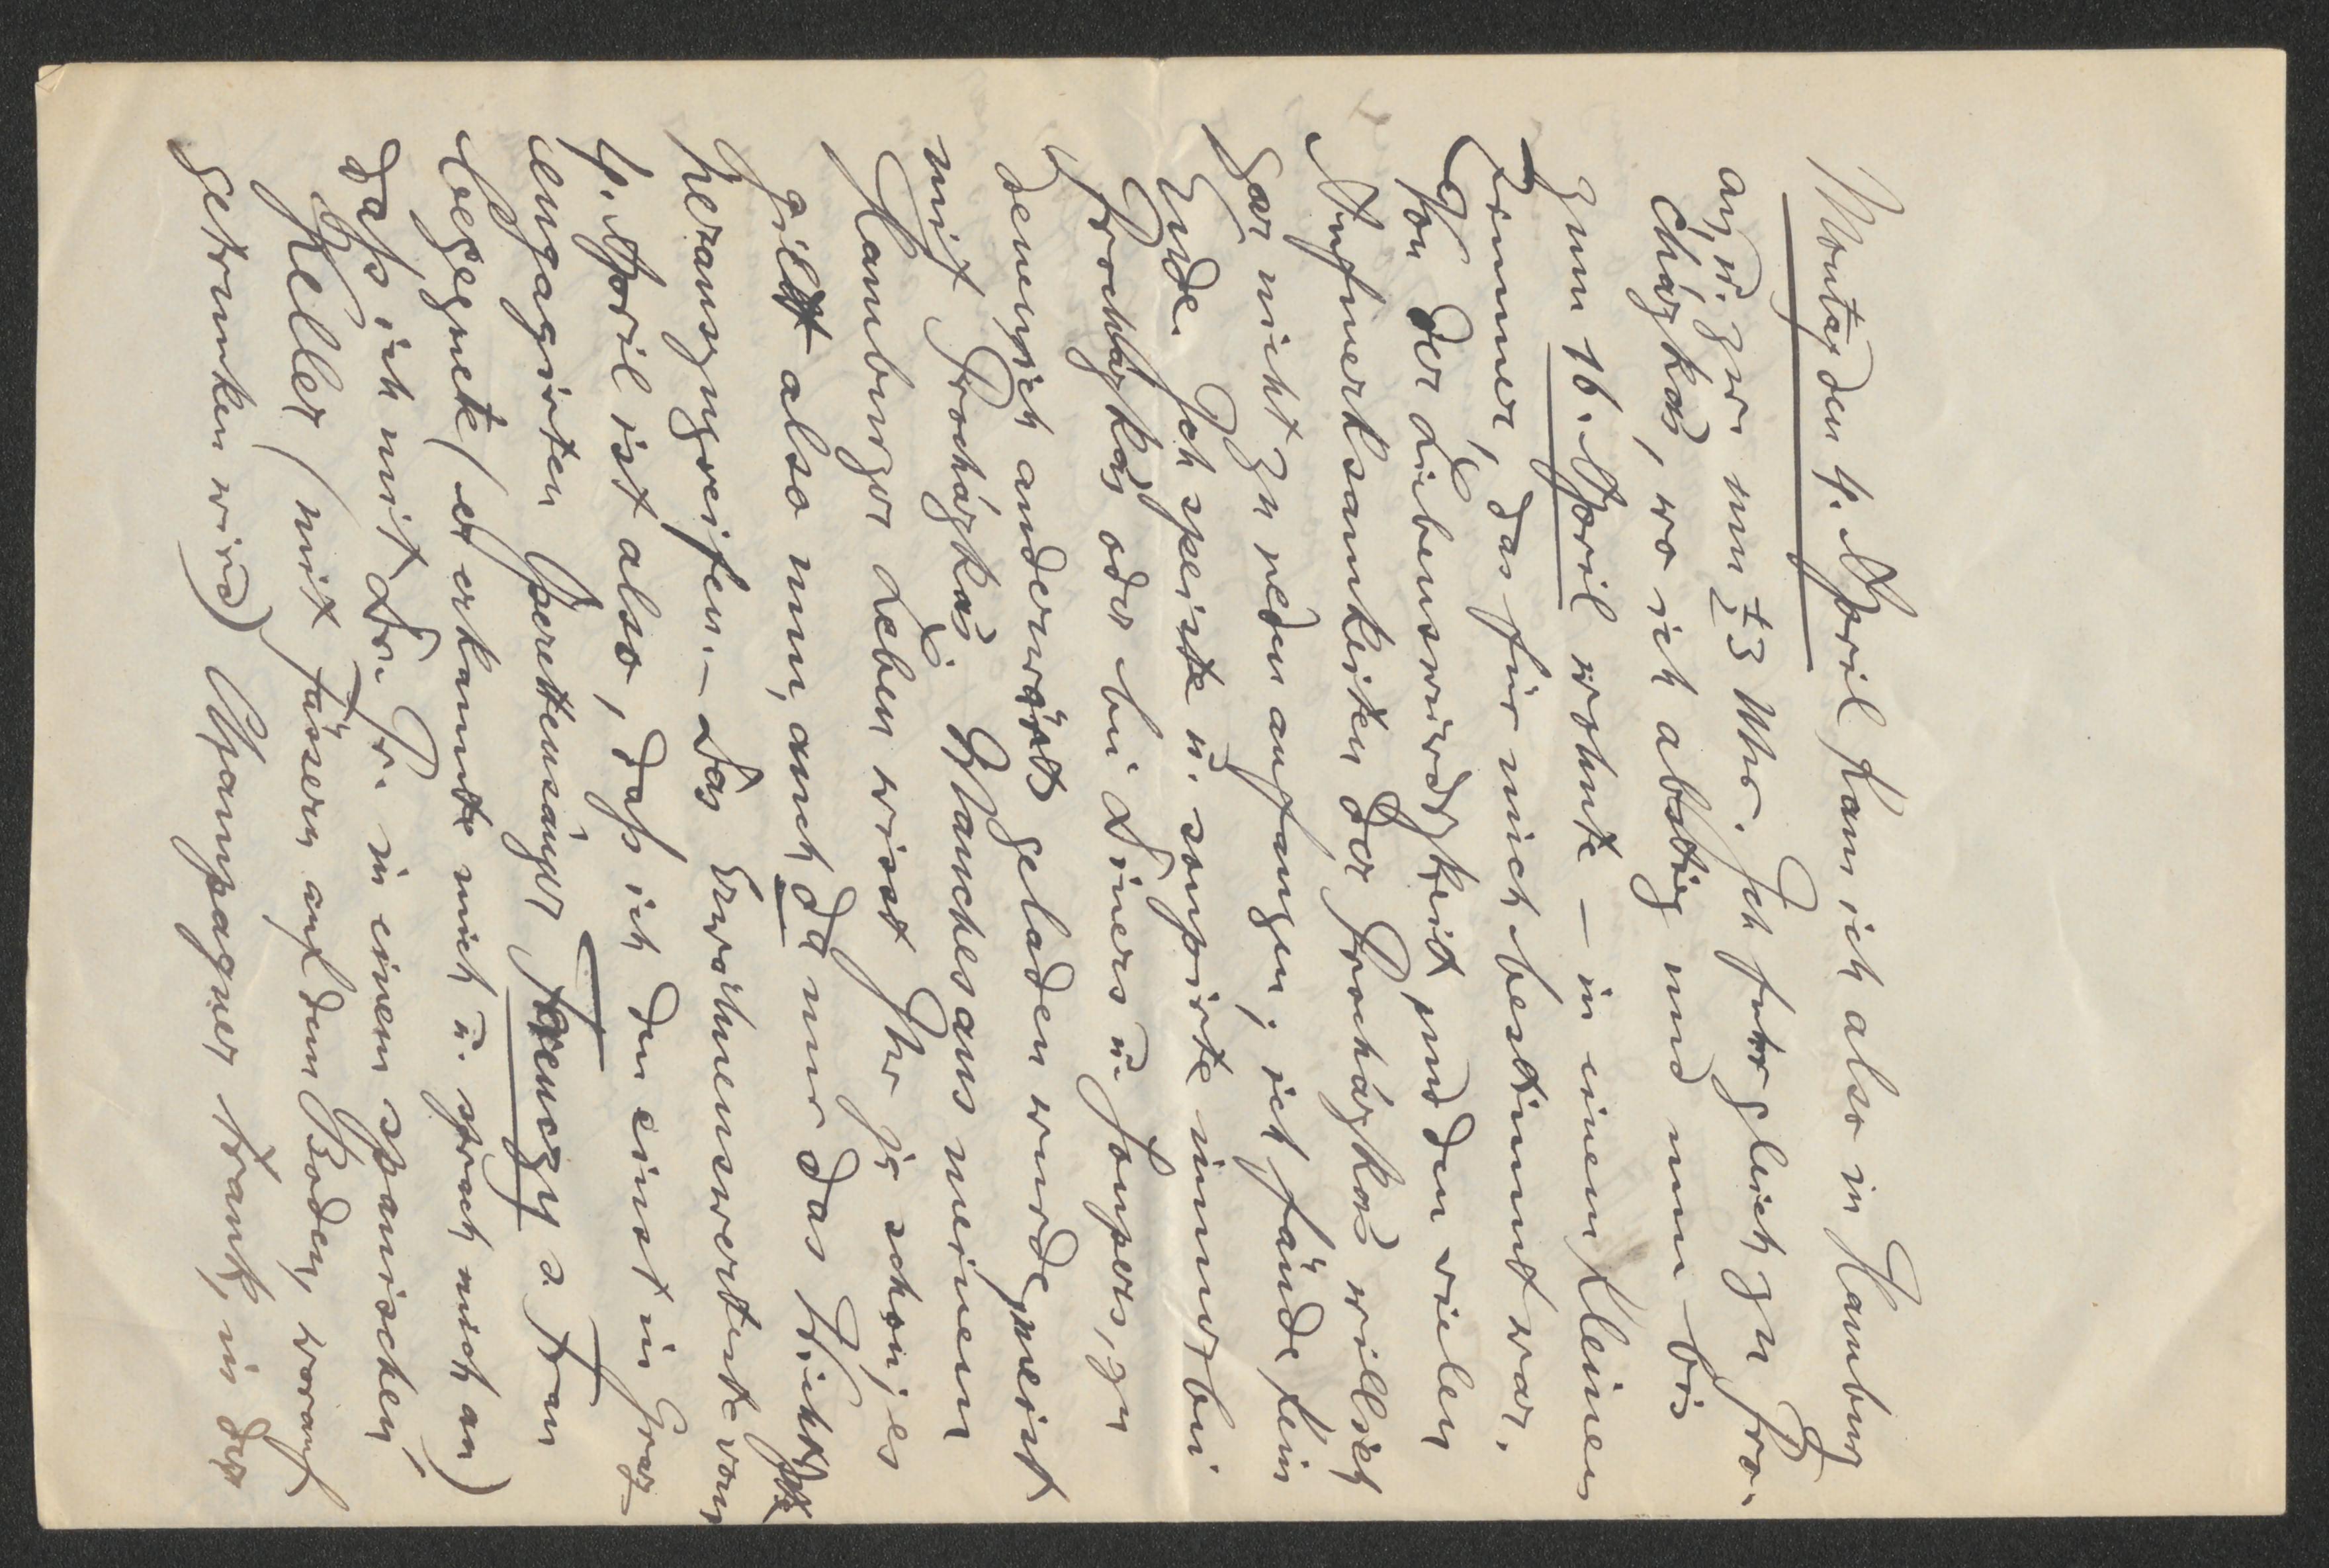 Montag den 4. April kam ich also in Hamburg
an, u. zw. um ½3 Uhr. Ich fuhr gleich zu Pro-
cházkas, wo ich abstieg und nun bis
zum 16. April wohnte – in einem kleinen
Zimmer, das für mich bestimmt war.
Von der Liebenswürdigkeit und den vielen
Aufmerksamkeiten der Procházkas will ich
gar nicht zu reden anfangen; ich fände kein
Ende. Ich speiste u. soupirte immer bei
Procházkas oder bei Diners u. Soupers, zu
denen ich anderwärts geladen wurde, meist
mit Procházkas. Manches aus meinem
Hamburger Leben wisst Ihr ja schon; es
gilt also nun, auch da nur das Wichtigste
herauszugreifen. – Das Erwähnenswerteste vom
4. April ist also, daß ich den einst in Graz
engagirten Operettensänger s. Frau
begegnete (er erkannte mich u. sprach mich an)
daß ich mit Dr. Pr. in einem spanischen
Keller (mit Fässern auf dem Boden, worauf
getrunken wird) Champagner trank, in der